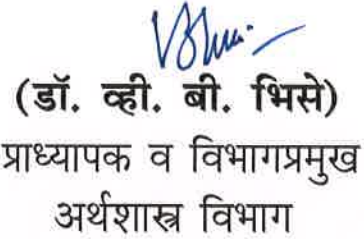 (डॉ. व्ही. बी. भिसे)
प्राध्यापक व विभागप्रमुख
अर्थशास्त्र विभाग